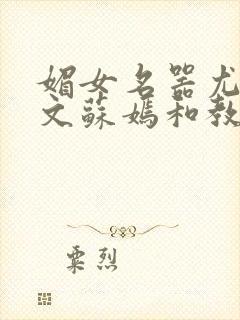 媚女名器尤
文蘇媽和教
粟烈